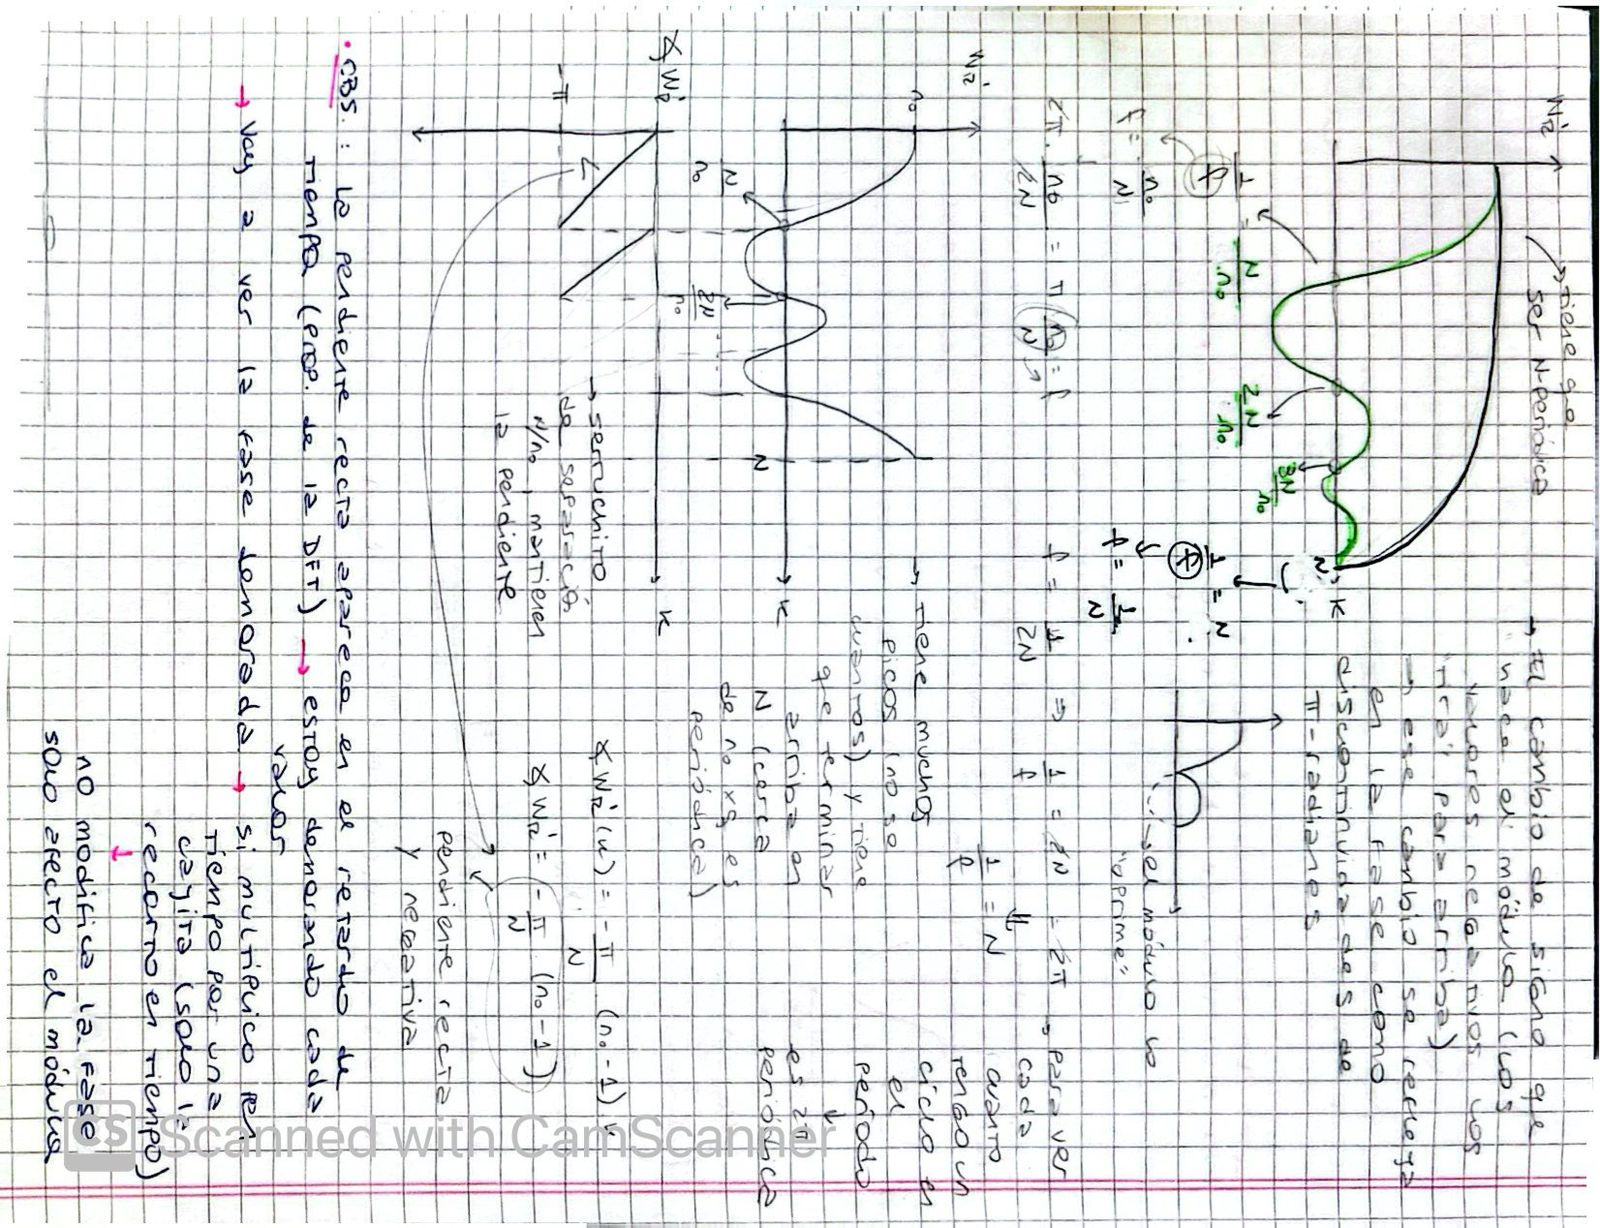 Wk
→ tiene q e
ser N-periódica
N/n₀
2N/n₀
3N/n₀
N
k
1/f = N/n₀
f = n₀/N
1/f = N
f = 1/N
→ El cambio de signo que
hace el módulo (los
valores negativos los
tira para arriba)
→ ese cambio se refleja
en la fase como
discontinuidades de
π-radianes
→ el módulo lo
"oprime"
2π · n₀/2N = π n₀/N = f
f = 1/2N ⇒ 1/f = 2N = 2π
⇓
1/f = N
→ para ver
cada
cuanto
tengo un
ciclo en
el
período
↓
es 2π
periódica
Wk
n₀
N/n₀
2N/n₀
N
k
→ tiene muchos
picos (no se
cuantos) y tiene
que terminar
arriba en
N (cerca
de n₀ xq es
periódica)
∡ Wk
-π
k
→ serruchito
de separación
N/n₀, mantienen
la pendiente
∡ Wk(k) = -π/N (n₀-1) k
∡ Wk = -π/N (n₀-1)
pendiente recta
y negativa
· OBS.: la pendiente recta aparece en el retardo de
tiempo (prop. de la DFT) → estoy demorando cada
valor
→ voy a ver la fase demorada → si multiplico en
tiempo por una
cajita (solo la
recorto en tiempo)
↓
no modifica la fase
solo afecto el módulo
CS Scanned with CamScanner